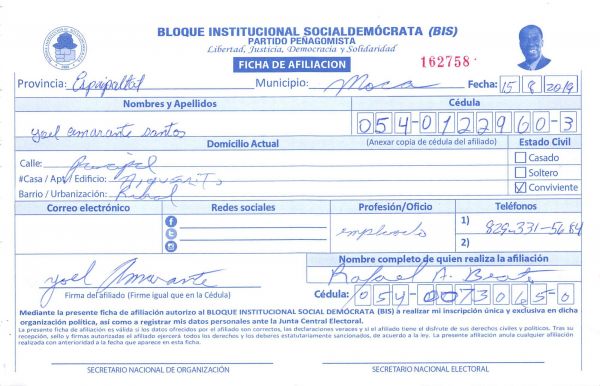 BLOQUE INSTITUCIONAL SOCIALDEMÓCRATA (BIS)
PARTIDO PEÑAGOMISTA
Libertad, Justicia, Democracia y Solidaridad
FICHA DE AFILIACION
162758
Provincia: Espaillat Municipio: Moca Fecha: 15 8 2019
Nombres y Apellidos Cédula
yoel amarante santos 054-0122960-3
Domicilio Actual (Anexar copia de cédula del afiliado) Estado Civil
Calle: principal Casado
#Casa / Apt / Edificio: Soltero
Barrio / Urbanización: Conviviente
Correo electrónico Redes sociales Profesión/Oficio Teléfonos
empleado 1) 829-331-5684
2)
Nombre completo de quien realiza la afiliación
yoel Amarante Rafael A.
Firma del afiliado (Firme igual que en la Cédula) Cédula: 054-0073065-0
Mediante la presente ficha de afiliación autorizo al BLOQUE INSTITUCIONAL SOCIAL DEMÓCRATA (BIS) a realizar mi inscripción única y exclusiva en dicha
organización política, así como a registrar mis datos personales ante la Junta Central Electoral.
La presente ficha de afiliación es válida si los datos ofrecidos por el afiliado son correctos, las declaraciones veraces y si el titular disfrute de sus derechos civiles y políticos. Tras su
recepción, sello y firmas autorizadas el afiliado ejercerá todos los derechos y los deberes estatutariamente sancionados, de acuerdo a la ley. La presente afiliación anula cualquier afiliación
realizada con anterioridad a la fecha que aparece en esta ficha.
SECRETARIO NACIONAL DE ORGANIZACIÓN SECRETARIO NACIONAL ELECTORAL